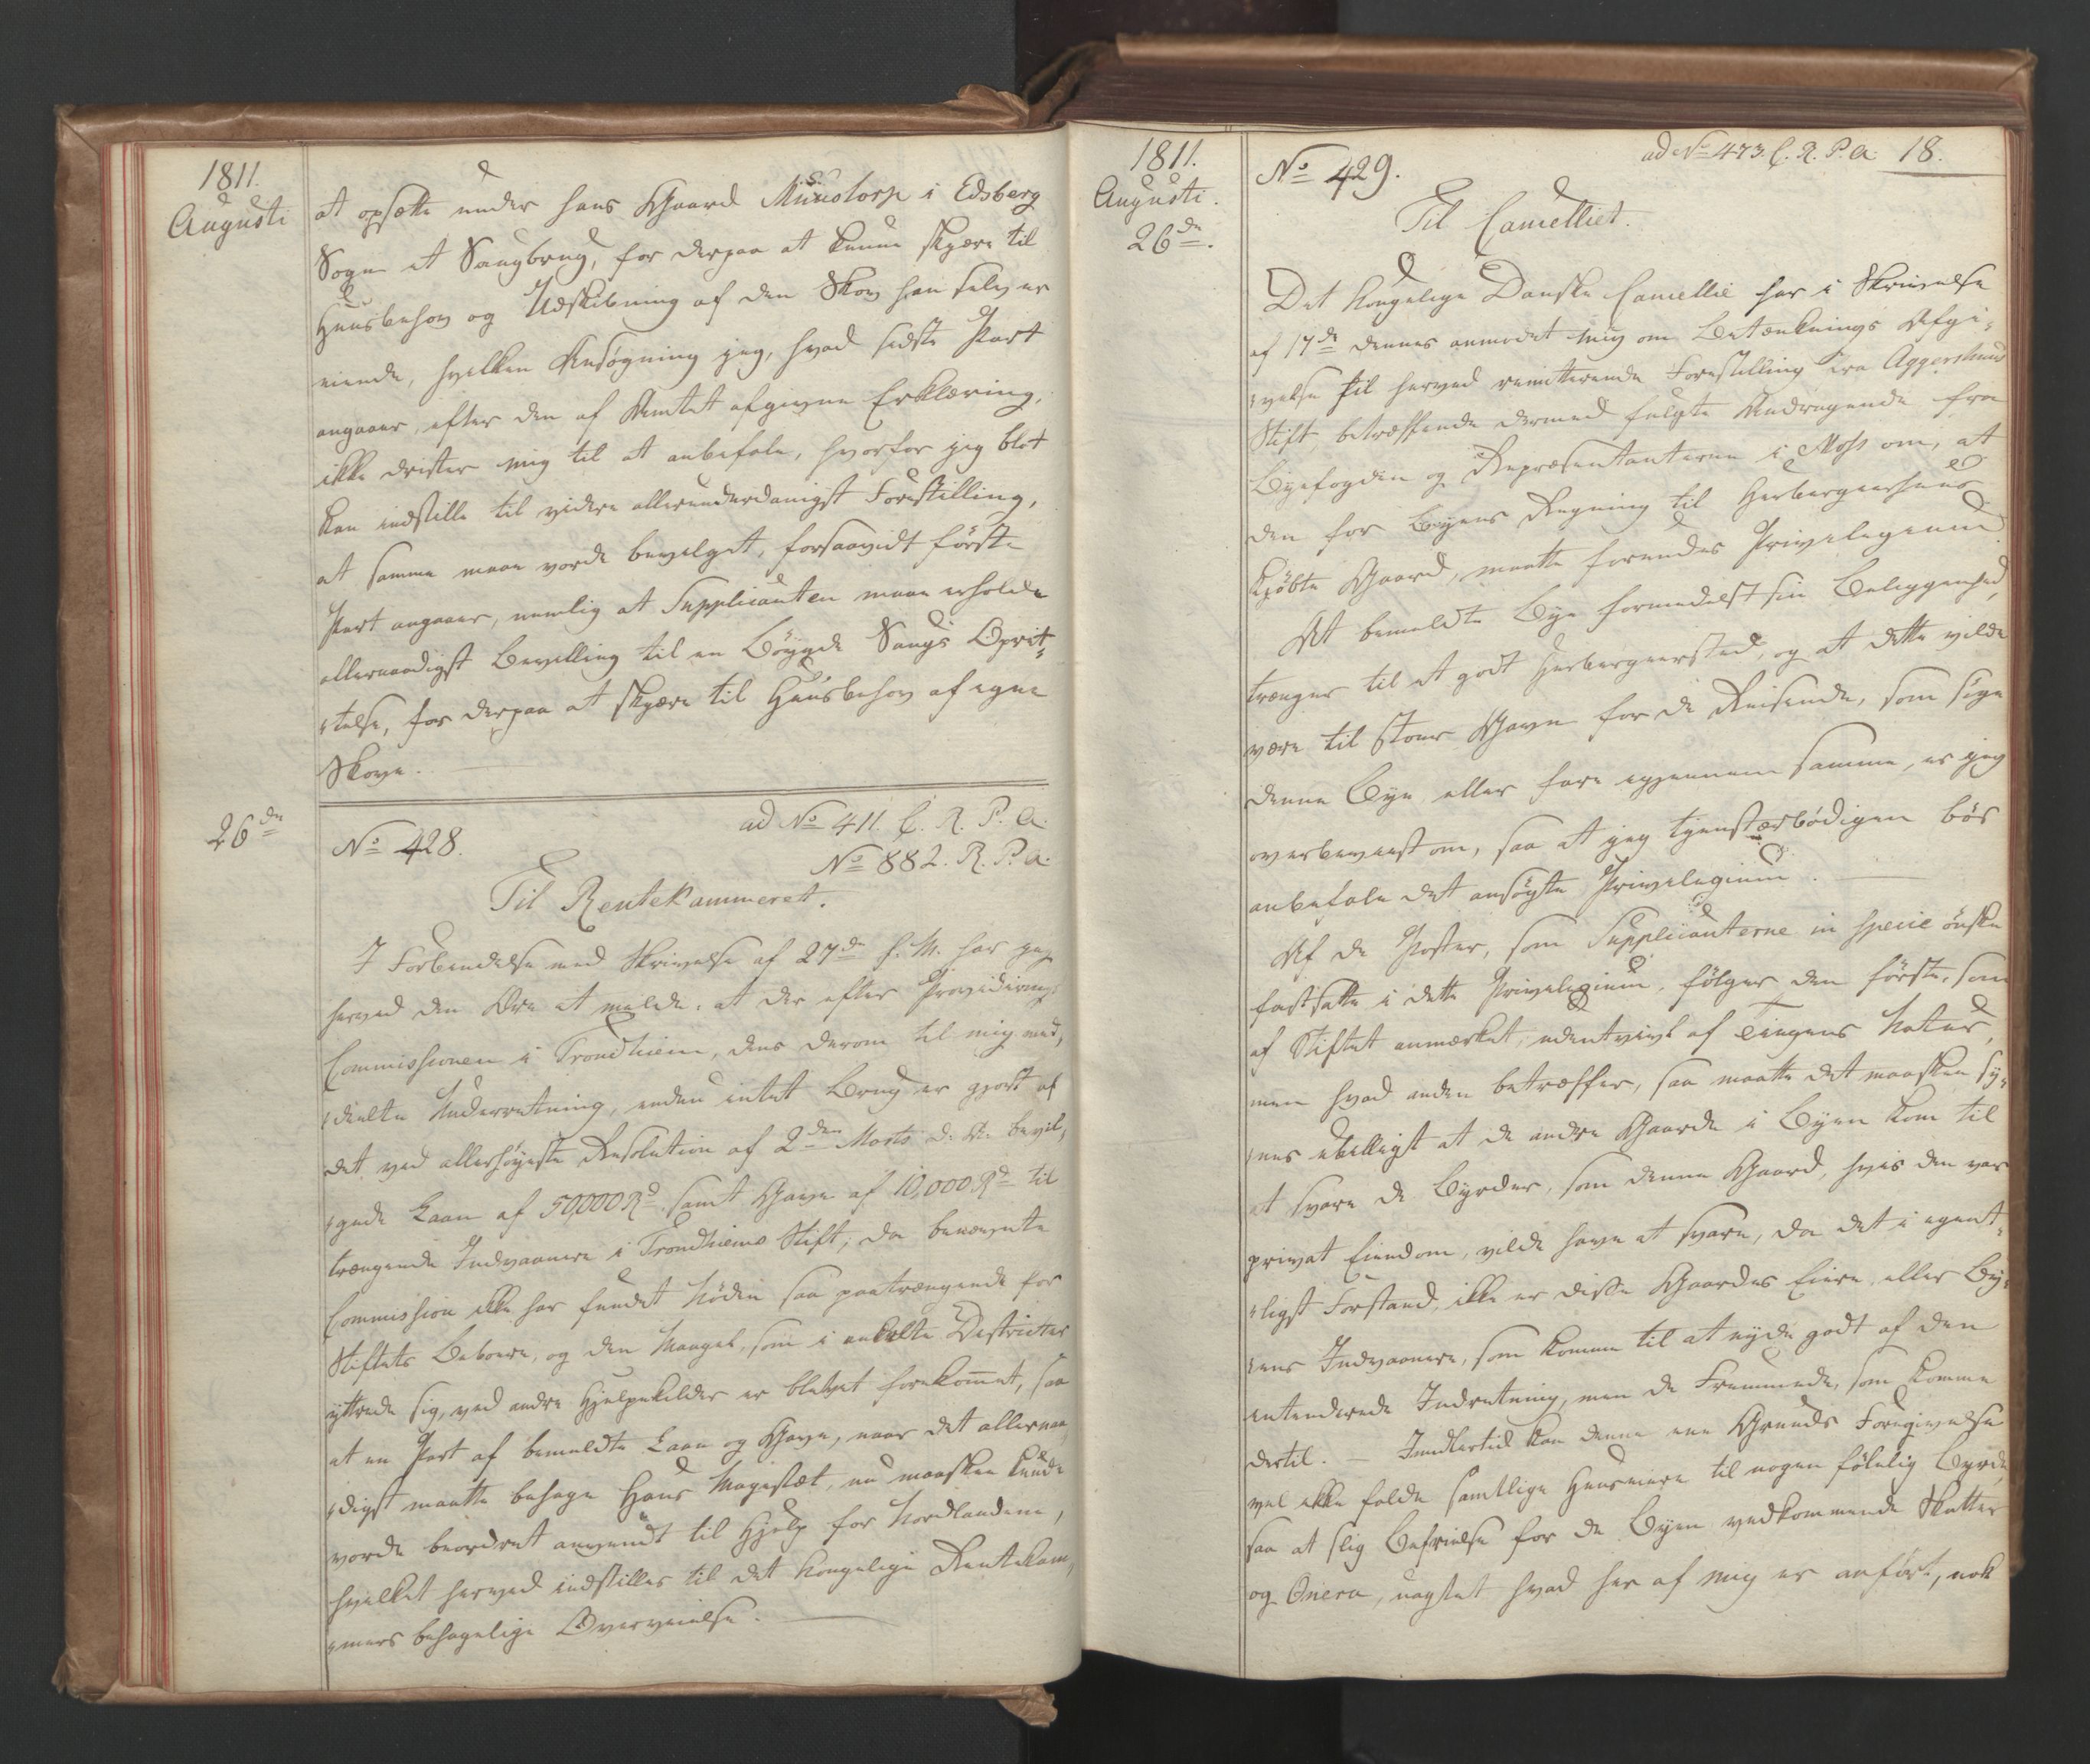 1811.
Augusti
at opsætte under hans Gaard Munstorp i Edsberg
Sogn et Saugbrug, for derpaa at kunne skjære til
Huusbehov og Udskibning af den Skov han selv er
eiende, hvilken Ansøgning jeg, hvad sidste Part
angaaer, efter den af Amtet afgivne Erklæring,
ikke drister mig til at anbefale, hvorfor jeg blot
kan indstille til videre allerunderdanigst Forestilling,
at samme maae vorde bevilget, forsaavidt første
Part angaaer, nemlig at Supplicanten maae erholde
allernaadigst Bevilling til en Bøygde Saugs Opret-
telse, for derpaa at skjære til Huusbehov af egne
Skove.
26de
No 428.
ad No 411. C. R. P. A.
No 882. R. P. A.
Til Rentekammeret.
I Forbindelse med Skrivelse af 27de f. M. har jeg
herved den Ære at melde, at der efter Provideerings
Commissionen i Trondhiem, dens derom til mig med-
deelte Underretning, endnu intet Brug er gjort af
det ved allerhøyeste Resolution af 2den Marts d. A. bevil-
gede Laan af 50,000 Rd samt Gave af 10,000 Rd til
trængende Indvaanere i Trondhiems Stift, da benævnte
Commission ikke har fundet Nøden saa paatrængende for
Stiftets Beboere, og den Mangel, som i enkelte Districter
yttrede sig, ved andre Hjelpekilder er blevet forekommet, saa
at en Part af bemeldte Laan og Gave, naar det allernaa-
digst maatte behage Hans Majestæt, nu maaskee kunde
vorde beordret anvendt til Hjelp for Nordlandene,
hvilket herved indstilles til det Kongelige Rentekam-
mers behagelige Overveielse.
1811.
Augusti.
26de.
No 429.
ad No 473. C. R. P. A. 18.
Til Cancelliet.
Det Kongelige Danske Cancellie har i Skrivelse
af 17de dennes anmodet mig om Betænknings Afgi-
velse til herved remitterende Forestilling fra Aggershuus
Stift, betræffende dermed fulgte Andragende fra
Byefogden og Repræsentanterne i Moss om, at
den for Byens Regning til Herbergeerhuus
kjøbte Gaard, maatte forundes Privelegium.
At bemeldte Bye formedelst sin Beliggenhed,
trænger til et godt Herbergeersted, og at dette vilde
være til stor Gavn for de Reisende, som søge
denne Bye eller fare igjennem samme, er jeg
overbeviist om, saa at jeg tjenstærbødigen bør
anbefale det ansøgte Privelegium.
Af de Poster, som Supplicanterne in specie ønske
fastsatte i dette Privelegium, følger den første, som
af Stiftet anmærket, udentvivl af Tingens Natur,
men hvad anden betræffer, saa maatte det maaskee sy-
nes ubilligt at de andre Gaarde i Byen kom til
at svare de Byrder, som denne Gaard, hvis den var
privat Eiendom, vilde have at svare, da det i egent-
ligst Forstand, ikke er disse Gaardes Eiere, eller By-
ens Indvaanere, som komme til at nyde godt af den
intenderede Indretning, men de Fremmede, som komme
dertil. – Imidlertid kan denne ene Grunds Foregivelse
vel ikke falde samtlige Huuseiere til nogen følelig Byrde
saa at slig Befrielse for de Byen vedkommende Skatter
og Onera, uagtet hvad her af mig er anført, nok